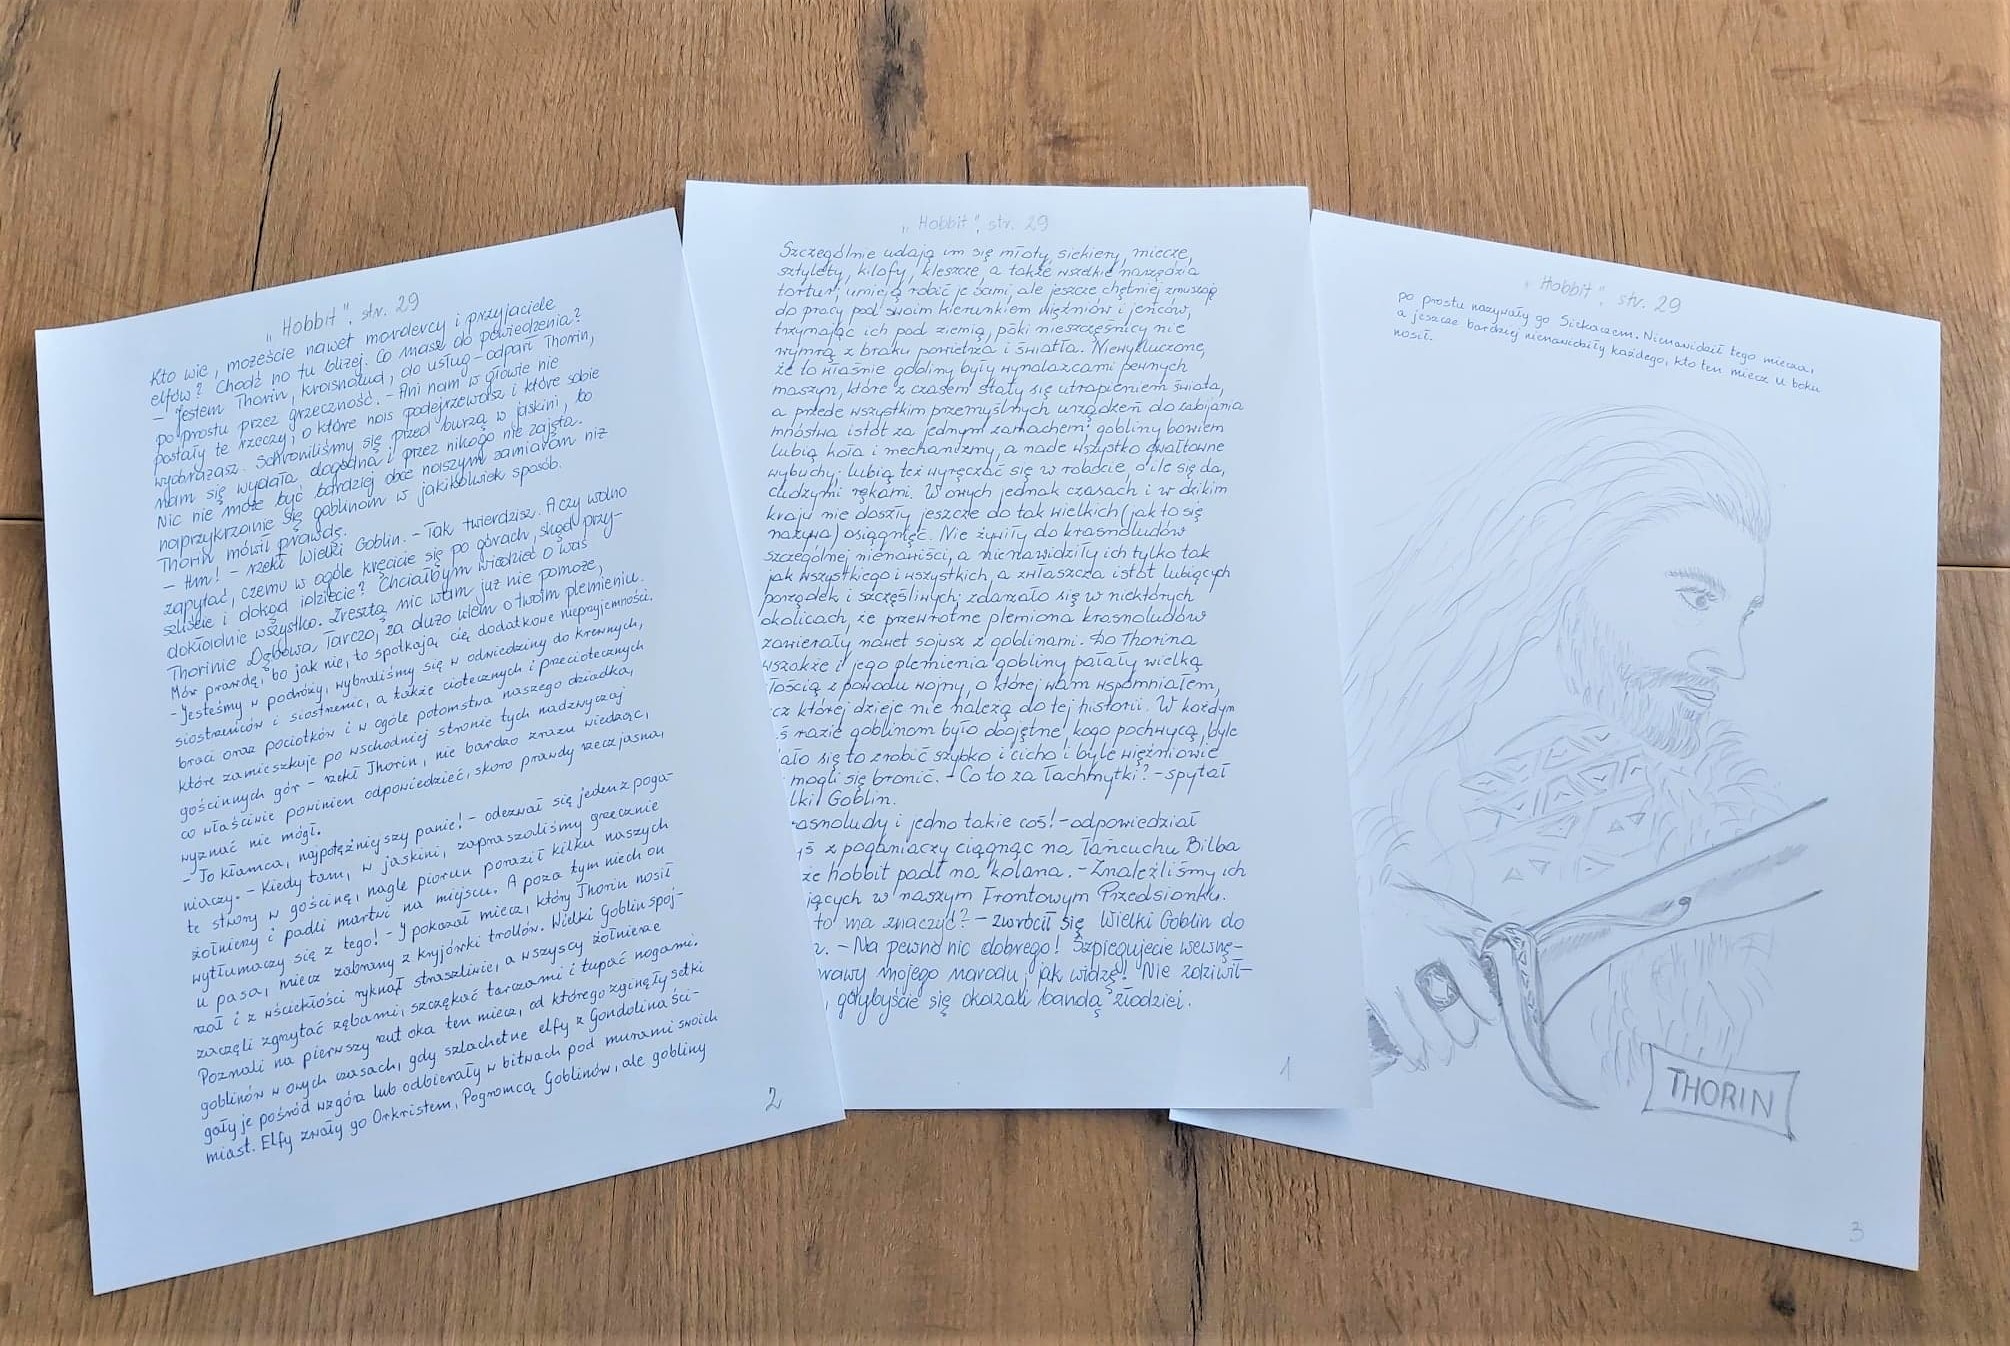 „Hobbit”, str. 29
Kto wie, możeście nawet mordercy i przyjaciele
elfów? Chodź no tu bliżej. Co masz do powiedzenia?
– Jestem Thorin, krasnolud, do usług – odparł Thorin,
po prostu przez grzeczność. – Ani nam w głowie nie
postały te rzeczy, o które nas podejrzewasz i które sobie
wyobrażasz. Schroniliśmy się przed burzą w jaskini, bo
nam się wydała dogodna i przez nikogo nie zajęta.
Nic nie może być bardziej obce naszym zamiarom niż
naprzykrzanie się goblinom w jakikolwiek sposób.
Thorin mówił prawdę.
– Hm! – rzekł Wielki Goblin. – Tak twierdzisz. A czy wolno
zapytać, czemu w ogóle kręcicie się po górach, skąd przy-
szliście i dokąd idziecie? Chciałbym wiedzieć o was
dokładnie wszystko. Zresztą nic wam już nie pomoże,
Thorinie Dębowa Tarczo, za dużo wiem o twoim plemieniu.
Mów prawdę, bo jak nie, to spotkają cię dodatkowe nieprzyjemności.
– Jesteśmy w podróży, wybraliśmy się w odwiedziny do krewnych,
siostrzeńców i siostrzenic, a także ciotecznych i przeciotecznych
braci oraz pociotków i w ogóle potomstwa naszego dziadka,
które zamieszkuje po wschodniej stronie tych nadzwyczaj
gościnnych gór – rzekł Thorin, nie bardzo zrazu wiedząc,
co właściwie powinien odpowiedzieć, skoro prawdy rzecz jasna,
wyznać nie mógł.
– To kłamca, najpotężniejszy panie! – odezwał się jeden z poga-
niaczy. – Kiedy tam, w jaskini, zapraszaliśmy grzecznie
te stwory w gościnę, nagle piorun poraził kilku naszych
żołnierzy i padli martwi na miejscu. A poza tym niech on
wytłumaczy się z tego! – I pokazał miecz, który Thorin nosił
u pasa, miecz zabrany z kryjówki trollów. Wielki Goblin spoj-
rzał i z wściekłości ryknął straszliwie, a wszyscy żołnierze
zaczęli zgrzytać zębami, szczękać tarczami i tupać nogami.
Poznali na pierwszy rzut oka ten miecz, od którego zginęły setki
goblinów w owych czasach, gdy szlachetne elfy z Gondolina ści-
gały je pośród wzgórz lub odbierały w bitwach pod murami swoich
miast. Elfy zwały go Orkristem, Pogromcą Goblinów, ale gobliny
2
„Hobbit”, str. 29
Szczególnie udają im się młoty, siekiery, miecze,
sztylety, kilofy, kleszcze, a także wszelkie narzędzia
tortur; umieją robić je sami, ale jeszcze chętniej zmuszają
do pracy pod swoim kierunkiem więźniów i jeńców,
trzymając ich pod ziemią, póki nieszczęśnicy nie
wymrą z braku powietrza i światła. Niewykluczone,
że to właśnie gobliny były wynalazcami pewnych
maszyn, które z czasem stały się utrapieniem świata,
a przede wszystkim przemyślnych urządzeń do zabijania
mnóstwa istot za jednym zamachem; gobliny bowiem
lubią koła i mechanizmy, a nade wszystko gwałtowne
wybuchy; lubią też wyręczać się w robocie, o ile się da,
cudzymi rękami. W owych jednak czasach i w dzikim
kraju nie doszły jeszcze do tak wielkich (jak to się
nazywa) osiągnięć. Nie żywiły do krasnoludów
szczególnej nienawiści, a nienawidziły ich tylko tak
jak wszystkiego i wszystkich, a zwłaszcza istot lubiących
porządek i szczęśliwych; zdarzało się w niektórych
okolicach, że przewrotne plemiona krasnoludów
zawierały nawet sojusz z goblinami. Do Thorina
wszakże i jego plemienia gobliny pałały wielką
łością z powodu wojny, o której wam wspomniałem,
cz której dzieje nie należą do tej historii. W każdym
ś razie goblinom było obojętne, kogo pochwycą, byle
ało się to zrobić szybko i cicho i byle więźniowie
mogli się bronić. – Co to za łachmytki? – spytał
lki Goblin.
asnoludy i jedno takie coś! – odpowiedział
yś z poganiaczy ciągnąc na łańcuchu Bilba
że hobbit padł na kolana. – Znaleźliśmy ich
jących w naszym Frontowym Przedsionku.
to ma znaczyć? – zwrócił się Wielki Goblin do
. – Na pewno nic dobrego! Szpiegujecie wewnę-
rawy mojego narodu, jak widzę! Nie zdziwił-
, gdybyście się okazali bandą złodziei.
1
„Hobbit”, str. 29
po prostu nazywały go Siekaczem. Nienawidził tego miecza,
a jeszcze bardziej nienawidziły każdego, kto ten miecz u boku
nosił.
THORIN
3